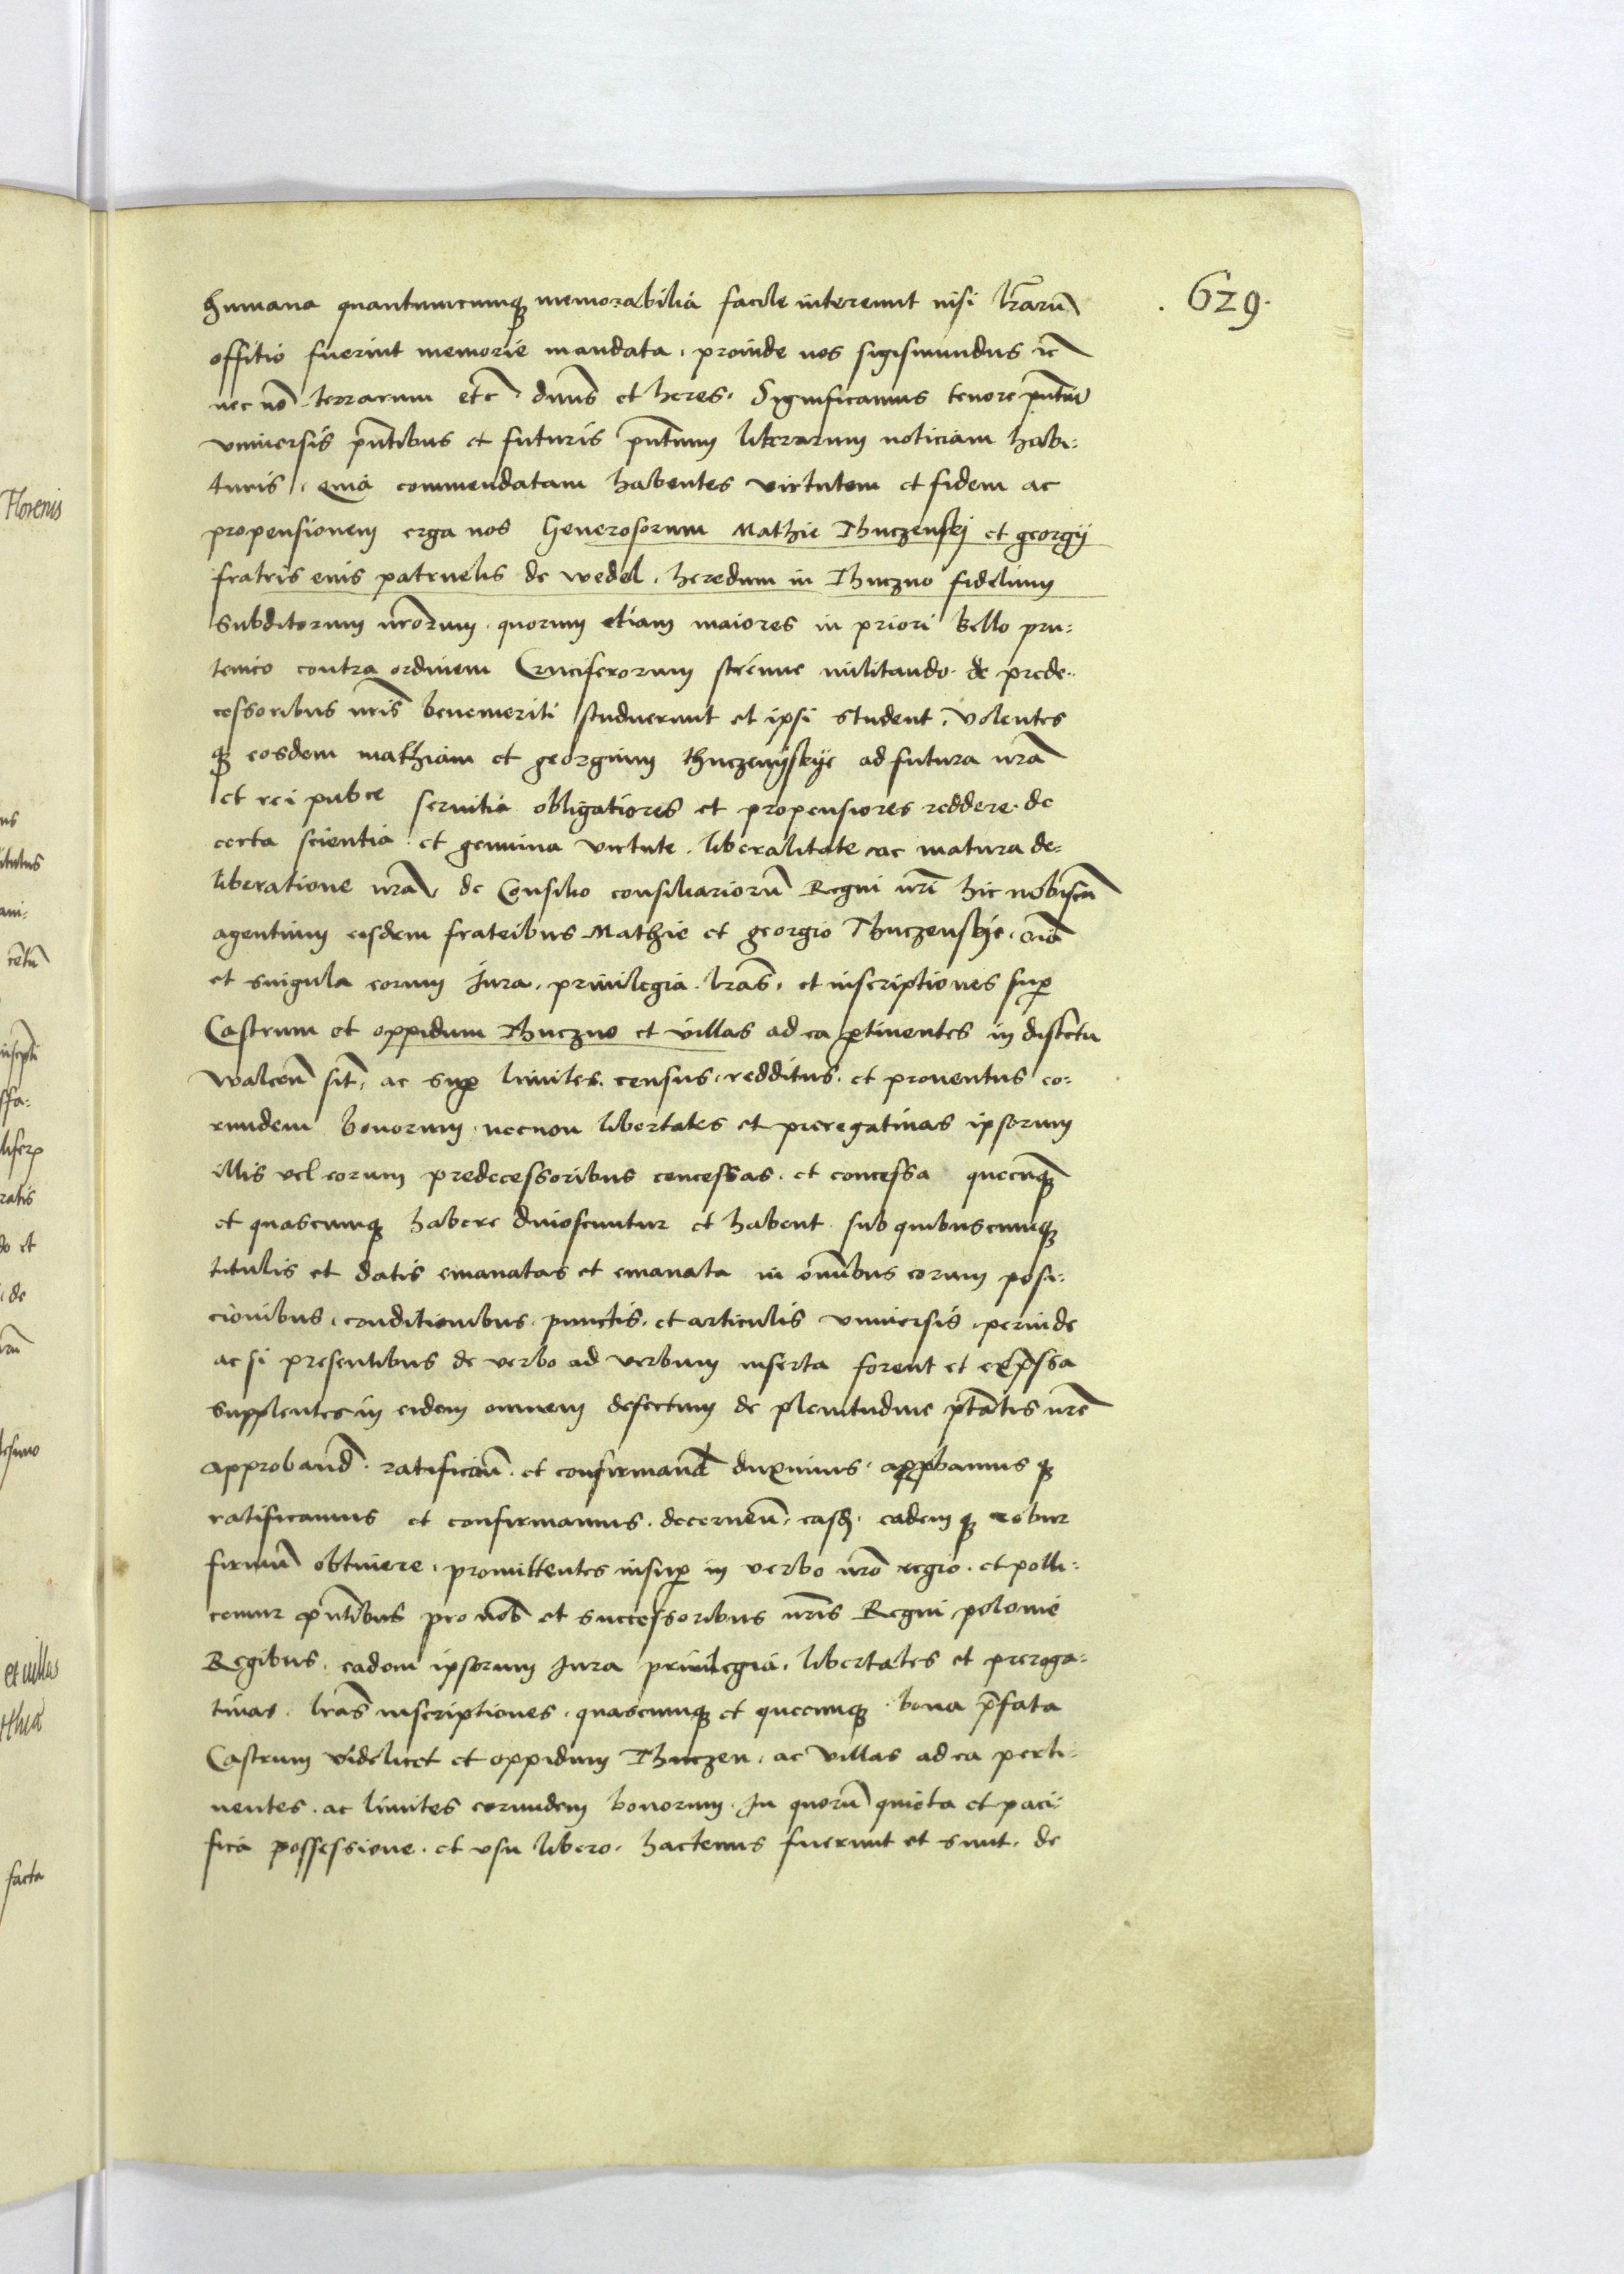 . 629.
humana quantumcumq memorabilia facile intereunt nisi lrarū
offitio fuerint memorie mandata. proinde nos sigismundus rc
nec nō terrarum etc dnns et heres. Significamus tenore pntiū
vniuersis pntibus et futuris pntium literarum noticiam habi:
turis. Quia commendatam habentes virtutem et fidem ac
propensionem erga nos Generosorum Mathie Thuczenskj et georgij
fratris eius patruelis de wedel. heredum in Thuczno fidelium
Subditorum nrorum. quorum etiam maiores in priori bello pru:
tenico contra ordinem Cruciferorum strenue militando. de prede..
cessoribus nris benemeriti studuerunt et ipsi student. volentes
q eosdem mathiam et georgium thuczenyskye ad futura nra
et rei pubce seruitia obligatiores et propensiores reddere. de
certa scientia et genuina virtute. liberalitate ac matura de=
liberatione nra. de Consilio consiliariorū Regni nri hic nobiscū
agentium eisdem fratribus Mathie et georgio Thuczenskye. oia
et singula eorum Jura. priuilegia. lras. et inscriptiones sup
Castrum et oppidum Thuczno et villas ad ea ptinentes in districtu
walcen sit. ac sup limites. census. redditus. et prouentus eo:
rundem bonorum. necnon libertates et preregatiuas ipsorum
illis vel eorum predecessoribus concessas. et concessa quecuq
et quascumq habere dinoscuntur et habent. sub quibuscumq
titulis et datis emanatas et emanata in oibus eorum posi:
cionibus. conditionibus. punctis. et articulis vniuersis. perinde
ac si presentibus de verbo ad verbum inserta forent et expssa
supplentes in eidem omnem defectum de plenitudine ptatis nre
approband. ratifican. et confirmand duximus. appbamus q
ratificamus et confirmamus. decernen. easd. eadem q robur
firmū obtinere. promittentes insup in verbo nro regio. et polli:
cemur pntibus pro nob et successoribus nris Regni polonie
Regibus. eadem ipsorum Jura priuilegia. libertates et preroga:
tiuas. lras inscriptiones. quascumq et quecumq. bona pfata
Castrum videlicet et oppidum Thuczen. ac villas ad ea perti:
nentes. ac limites eorundem bonorum. In quorū quieta et paci:
fica possessione. et vsu libero. hactenus fuerunt et sunt. de
Florenis
et villas
facta